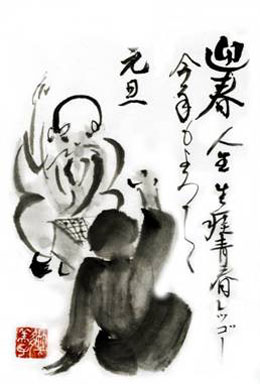 迎春 人生生涯青春レッゴー
今年もよろしく
元旦